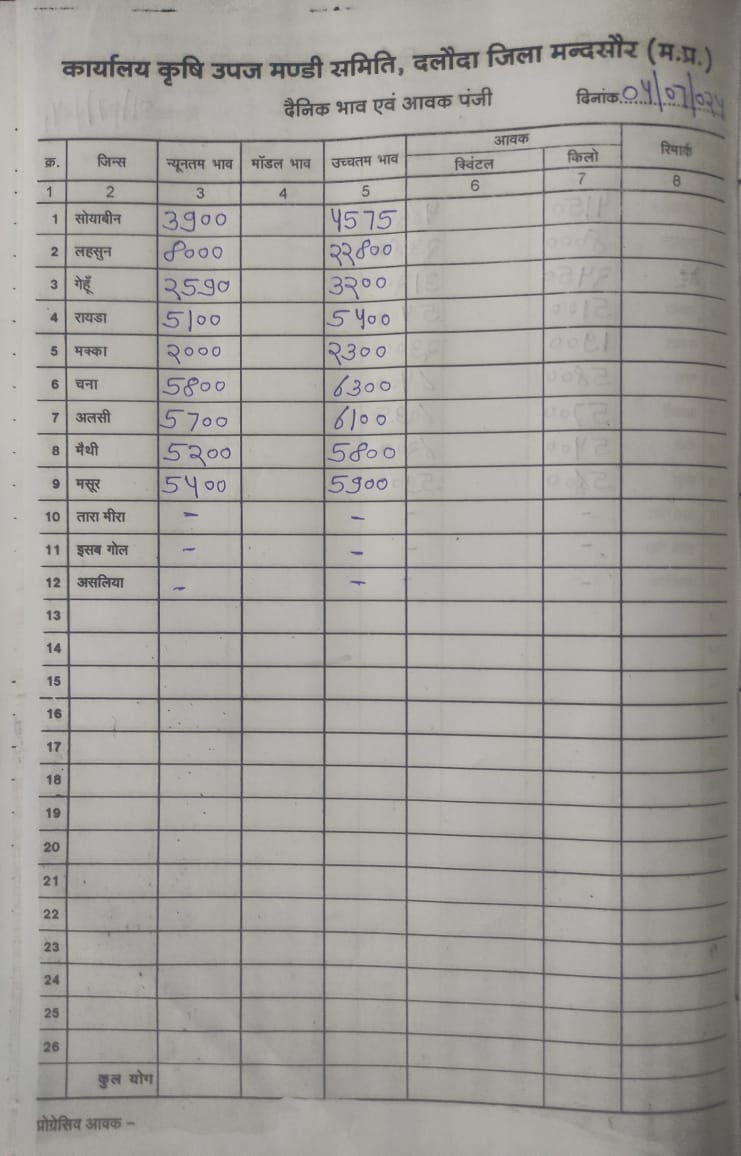 कार्यालय कृषि उपज मण्डी समिति, दलौदा जिला मन्दसौर (म.प्र.)
दैनिक भाव एवं आवक पंजी दिनांक 04/07/024
क्र. जिन्स न्यूनतम भाव मॉडल भाव उच्चतम भाव आवक रिमार्क
क्विंटल किलो
1 2 3 4 5 6 7 8
1 सोयाबीन 3900 4575
2 लहसुन 8000 22800
3 गेहूँ 2590 3200
4 रायडा 5100 5400
5 मक्का 2000 2300
6 चना 5800 6300
7 अलसी 5700 6100
8 मैथी 5200 5800
9 मसूर 5400 5900
10 तारा मीरा - -
11 इसब गोल - -
12 असलिया - -
13
14
15
16
17
18
19
20
21
22
23
24
25
26
कुल योग
प्रोग्रेसिव आवक -